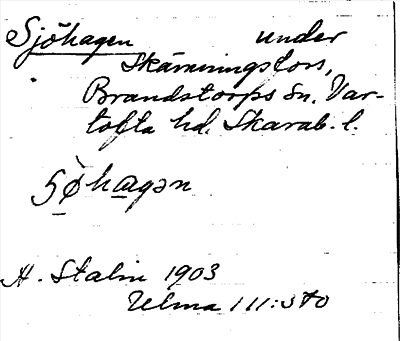 Sjöhagen under
Skämningsfors,
Brandstorps sn. Var-
tofta hd. Skarab. l.
H. Stalin 1903
Ulma 111:370